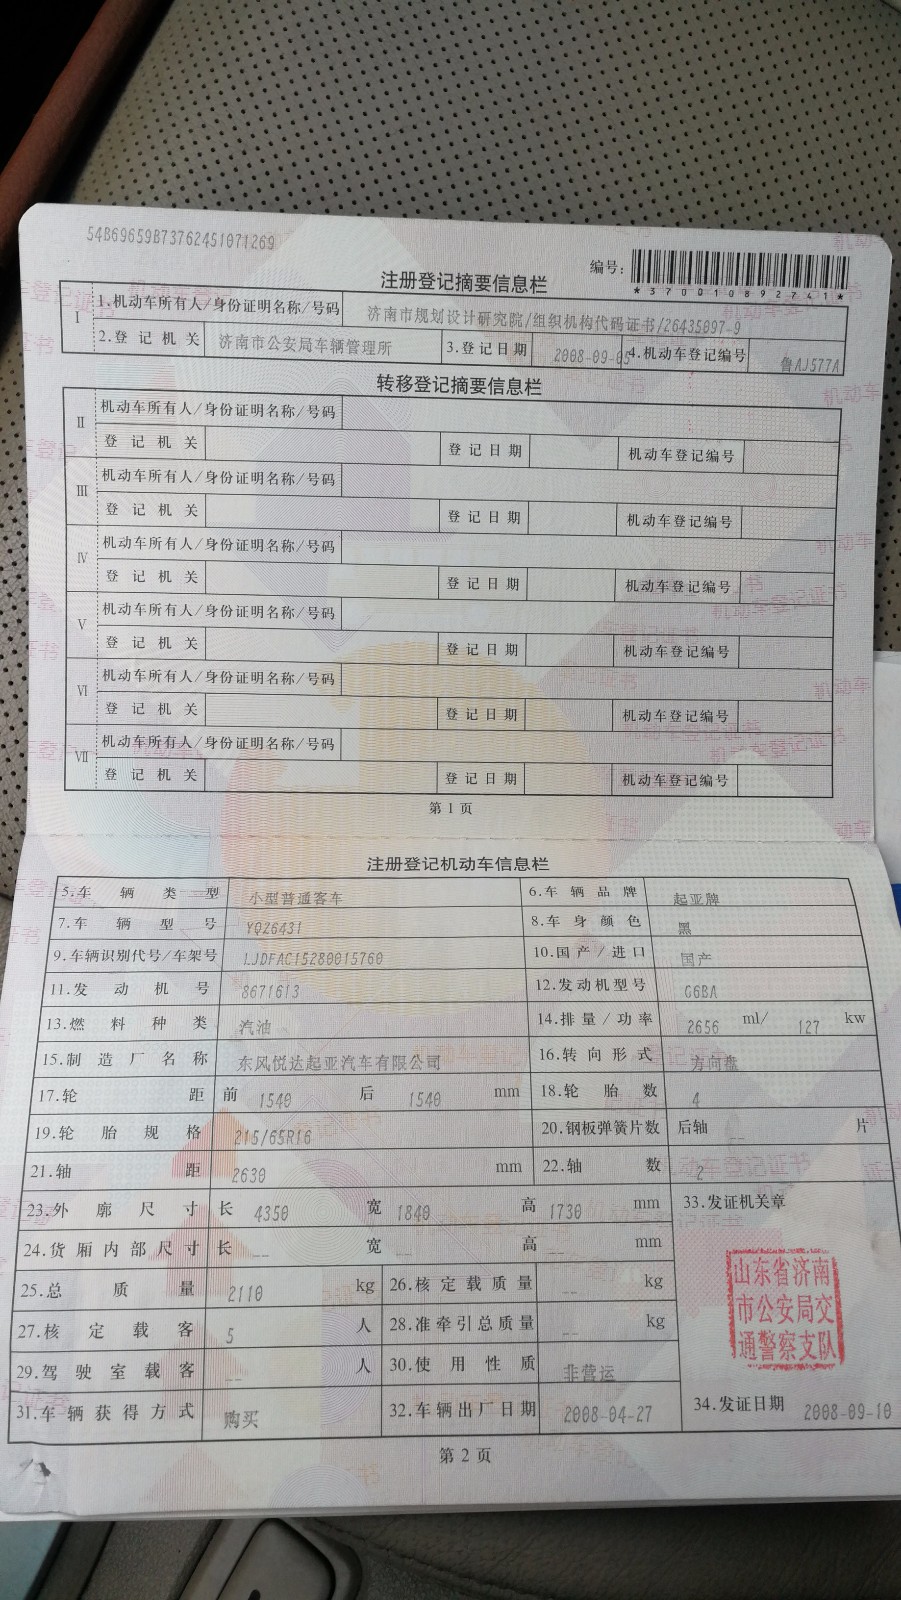 54B69659B73762451071269
编号:
*370010892741*
注册登记摘要信息栏
I 1.机动车所有人/身份证明名称/号码 济南市规划设计研究院/组织机构代码证书/26435097-9
2.登记机关 济南市公安局车辆管理所 3.登记日期 2008-09-05 4.机动车登记编号 鲁AJ577A
转移登记摘要信息栏
II 机动车所有人/身份证明名称/号码
登记机关 登记日期 机动车登记编号
III 机动车所有人/身份证明名称/号码
登记机关 登记日期 机动车登记编号
IV 机动车所有人/身份证明名称/号码
登记机关 登记日期 机动车登记编号
V 机动车所有人/身份证明名称/号码
登记机关 登记日期 机动车登记编号
VI 机动车所有人/身份证明名称/号码
登记机关 登记日期 机动车登记编号
VII 机动车所有人/身份证明名称/号码
登记机关 登记日期 机动车登记编号
第1页
注册登记机动车信息栏
5.车辆类型 小型普通客车 6.车辆品牌 起亚牌
7.车辆型号 YQZ6431 8.车身颜色 黑
9.车辆识别代号/车架号 LJDFAC15280015760 10.国产/进口 国产
11.发动机号 8671613 12.发动机型号 G6BA
13.燃料种类 汽油 14.排量/功率 2656 ml/ 127 kw
15.制造厂名称 东风悦达起亚汽车有限公司 16.转向形式 方向盘
17.轮距 前 1540 后 1540 mm 18.轮胎数 4
19.轮胎规格 215/65R16 20.钢板弹簧片数 后轴 -- 片
21.轴距 2630 mm 22.轴数 2
23.外廓尺寸 长 4350 宽 1840 高 1730 mm 33.发证机关章
24.货厢内部尺寸 长 -- 宽 -- 高 -- mm
25.总质量 2110 kg 26.核定载质量 -- kg
27.核定载客 5 人 28.准牵引总质量 -- kg
山东省济南
市公安局交
通警察支队
29.驾驶室载客 -- 人 30.使用性质 非营运
31.车辆获得方式 购买 32.车辆出厂日期 2008-04-27 34.发证日期 2008-09-10
第2页